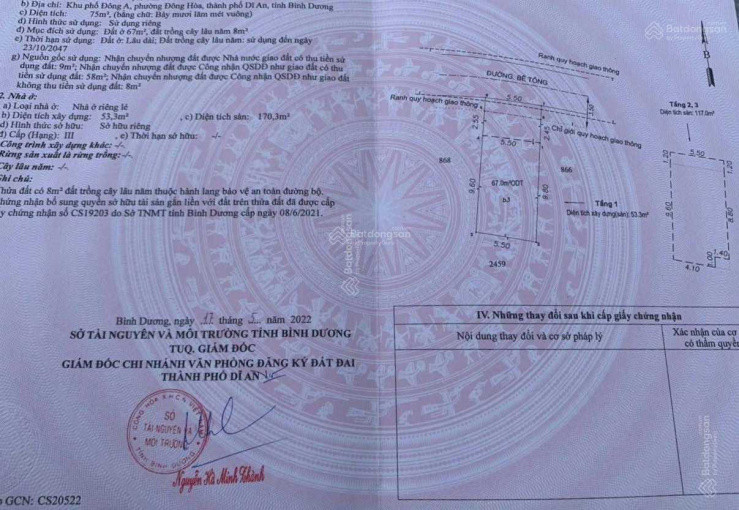 b) Địa chỉ: Khu phố Đông A, phường Đông Hòa, thành phố Dĩ An, tỉnh Bình Dương
c) Diện tích: 75m², (bằng chữ: Bảy mươi lăm mét vuông)
d) Hình thức sử dụng: Sử dụng riêng
đ) Mục đích sử dụng: Đất ở 67m², đất trồng cây lâu năm 8m²
e) Thời hạn sử dụng: Đất ở: Lâu dài; Đất trồng cây lâu năm: sử dụng đến ngày
23/10/2047
g) Nguồn gốc sử dụng: Nhận chuyển nhượng đất được Nhà nước giao đất có thu tiền sử
dụng đất: 9m²; Nhận chuyển nhượng đất được Công nhận QSDĐ như giao đất có thu
tiền sử dụng đất: 58m²; Nhận chuyển nhượng đất được Công nhận QSDĐ như giao đất
không thu tiền sử dụng đất: 8m²
2. Nhà ở:
a) Loại nhà ở: Nhà ở riêng lẻ
b) Diện tích xây dựng: 53,3m² , c) Diện tích sàn: 170,3m²
d) Hình thức sở hữu: Sở hữu riêng
đ) Cấp (Hạng): III , e) Thời hạn sở hữu: -/-
Công trình xây dựng khác: -/-
Rừng sản xuất là rừng trồng: -/-
Cây lâu năm: -/-
Ghi chú:
Thửa đất có 8m² đất trồng cây lâu năm thuộc hành lang bảo vệ an toàn đường bộ.
hứng nhận bổ sung quyền sở hữu tài sản gắn liền với đất trên thửa đất đã được cấp
y chứng nhận số CS19203 do Sở TNMT tỉnh Bình Dương cấp ngày 08/6/2021.
Bình Dương, ngày 17 tháng 5 năm 2022
SỞ TÀI NGUYÊN VÀ MÔI TRƯỜNG TỈNH BÌNH DƯƠNG
TUQ. GIÁM ĐỐC
GIÁM ĐỐC CHI NHÁNH VĂN PHÒNG ĐĂNG KÝ ĐẤT ĐAI
THÀNH PHỐ DĨ AN
CỘNG HÒA X.H.C.N VIỆT NAM
SỞ
TÀI NGUYÊN VÀ
MÔI TRƯỜNG
TỈNH BÌNH DƯƠNG
Nguyễn Hà Minh Thành
p GCN: CS20522
Batdongsan
by PropertyGuru
B
Ranh quy hoạch giao thông
ĐƯỜNG BÊ TÔNG
5.50
3.50
Ranh quy hoạch giao thông
Chỉ giới quy hoạch giao thông
2.55
2.45
5.50
868
866
67.0m²ODT
b3
9.60
9.80
Tầng 1
Diện tích xây dựng(sàn): 53.3m²
5.50
2459
Tầng 2, 3
Diện tích sàn: 117.0m²
1.20
5.50
1.20
9.60
8.80
1.40
1.00
4.10
IV. Những thay đổi sau khi cấp giấy chứng nhận
Nội dung thay đổi và cơ sở pháp lý
Xác nhận của cơ
có thẩm quyề
Batdongsan
Batdongsan
Batdongsan